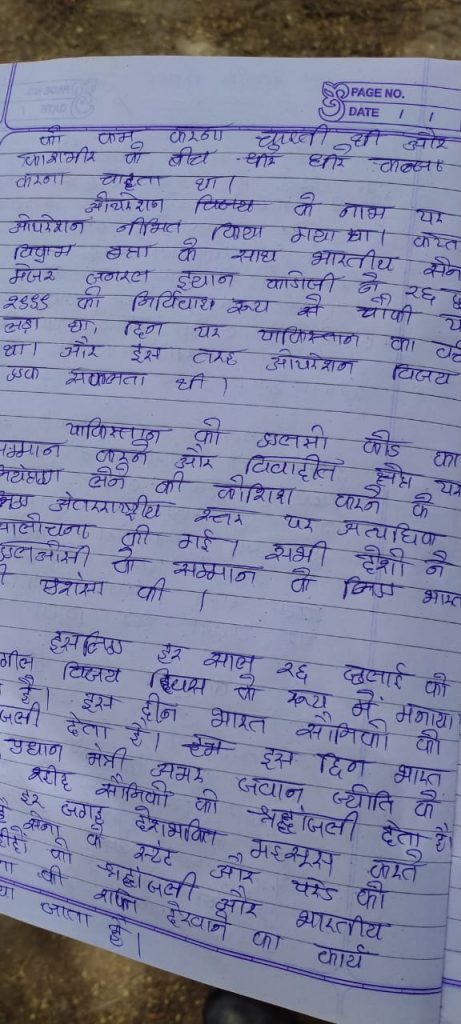 PAGE NO.
DATE / /
को कम करना चाहती थी और
काशमीर के बीच धीरे धीरे कब्जा
करना चाहता था।
ऑपरेशन विजय के नाम पर
ओपरेशन नीमित किया गया था।
के साथ भारतीय सैन
मेजर जनरल इयान ने २६
१९९९ को रूप से चौकी
लड़ा था, दिन पर पाकिस्तान का
था। और इस तरह ओपरेशन विजय
एक सफलता थी।
पाकिस्तान को एलसी का
सम्मान करने और क्षेत्र पर
लेने की कोशिश करने के
लिए अंतरराष्ट्रीय स्तर पर अत्यधिक
आलोचना की गई। सभी देशों ने
एलओसी के सम्मान के लिए भारत
की प्रशंसा की।
इसलिए हर साल २६ जुलाई को
विजय दिवस के रूप में मनाया
है। इस दीन भारत सौनिको को
देता है। इस दिन भारत
प्रधान मंत्री अमर जवान ज्योति के
शहीद सौनिको को श्रद्धांजली देता है
हर जगह देशभक्ति महसूस करते
है सेना के स्टेट और परेड को
को श्रद्धांजली और भारतीय
की शक्ति देखाने का कार्य
जाता है।